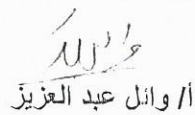 أ/ وائل عبد العزيز